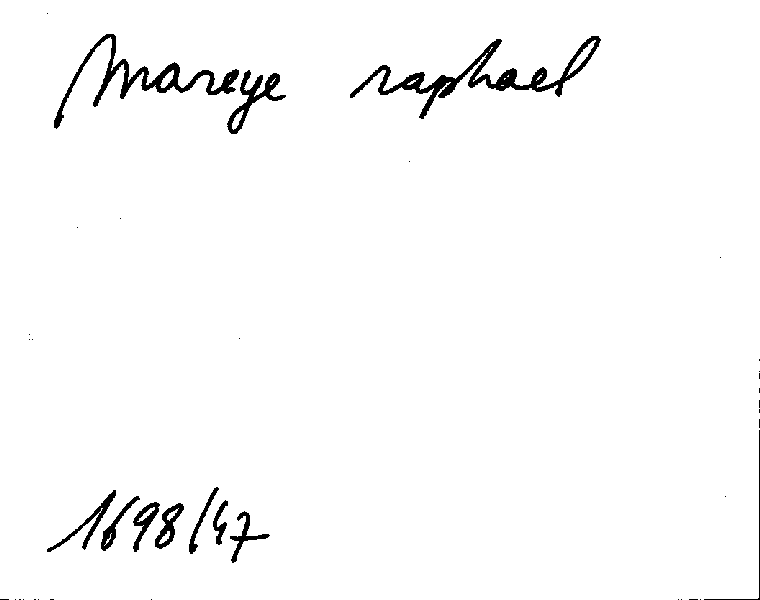 Mareye raphael
1698/47